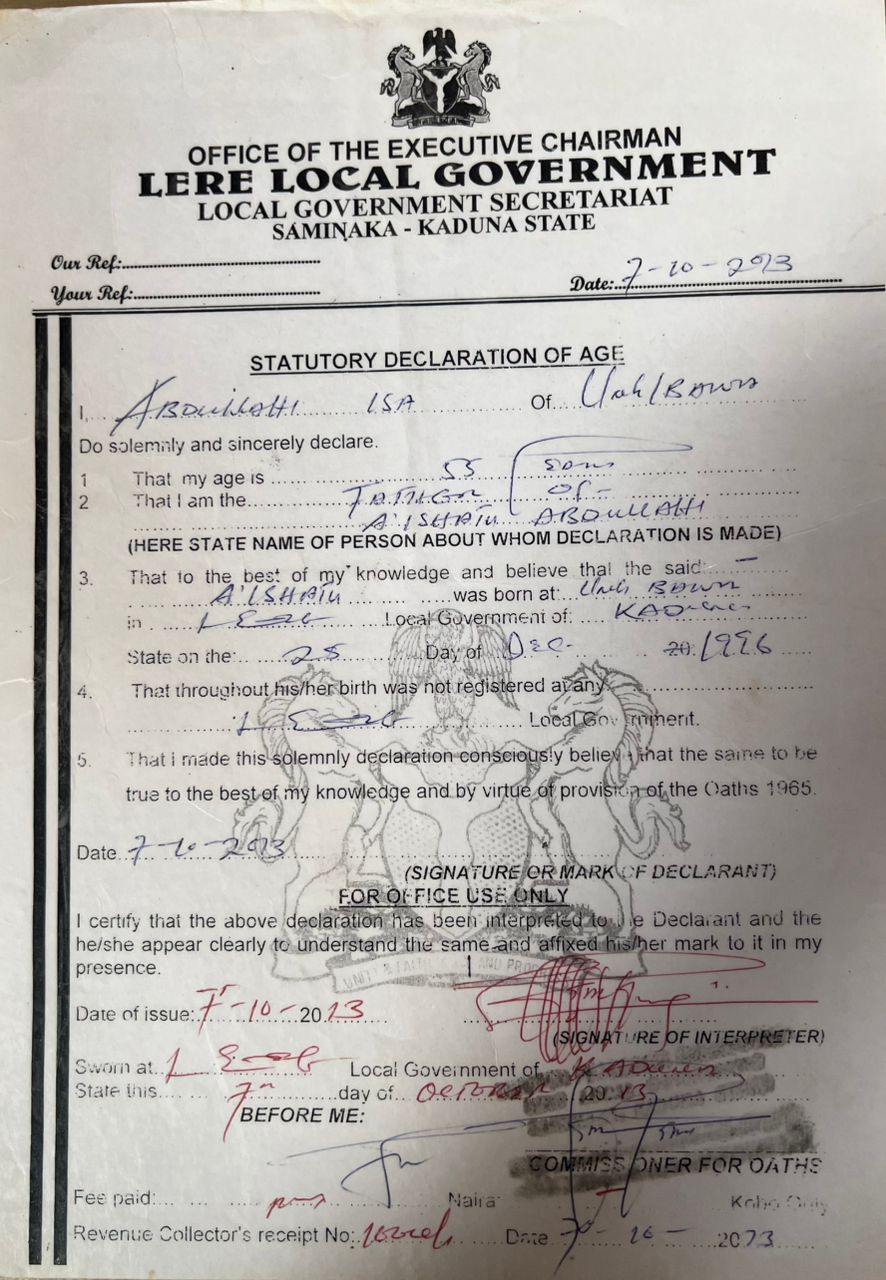 OFFICE OF THE EXECUTIVE CHAIRMAN
LERE LOCAL GOVERNMENT
LOCAL GOVERNMENT SECRETARIAT
SAMINAKA - KADUNA STATE
Our Ref:
Your Ref: Date: 7-10-2013
STATUTORY DECLARATION OF AGE
I, ABDULLAHI ISA Of Unh/BAWA
Do solemnly and sincerely declare.
1 That my age is 55
2 That I am the FATHER OF
A'ISHATU ABDULLAHI
(HERE STATE NAME OF PERSON ABOUT WHOM DECLARATION IS MADE)
3. That to the best of my knowledge and believe that the said:
A'ISHATU was born at: BAWA
in LERE Local Government of: KADUNA
State on the: 28 Day of Dec 20 1996
4. That throughout his/her birth was not registered at any
LERE Local Government.
5. That I made this solemnly declaration consciously believe that the same to be
true to the best of my knowledge and by virtue of provision of the Oaths 1965.
Date 7-10-2013
(SIGNATURE OR MARK OF DECLARANT)
FOR OFFICE USE ONLY
I certify that the above declaration has been interpreted to the Declarant and the
he/she appear clearly to understand the same and affixed his/her mark to it in my
presence.
Date of issue: 7-10-2013
(SIGNATURE OF INTERPRETER)
Sworn at LERE Local Government of KADUNA
State this 7th day of OCTOBER 2013
BEFORE ME:
COMMISSIONER FOR OATHS
Fee paid: Naira Kobo Only
Revenue Collector's receipt No: Date 7-10-2013